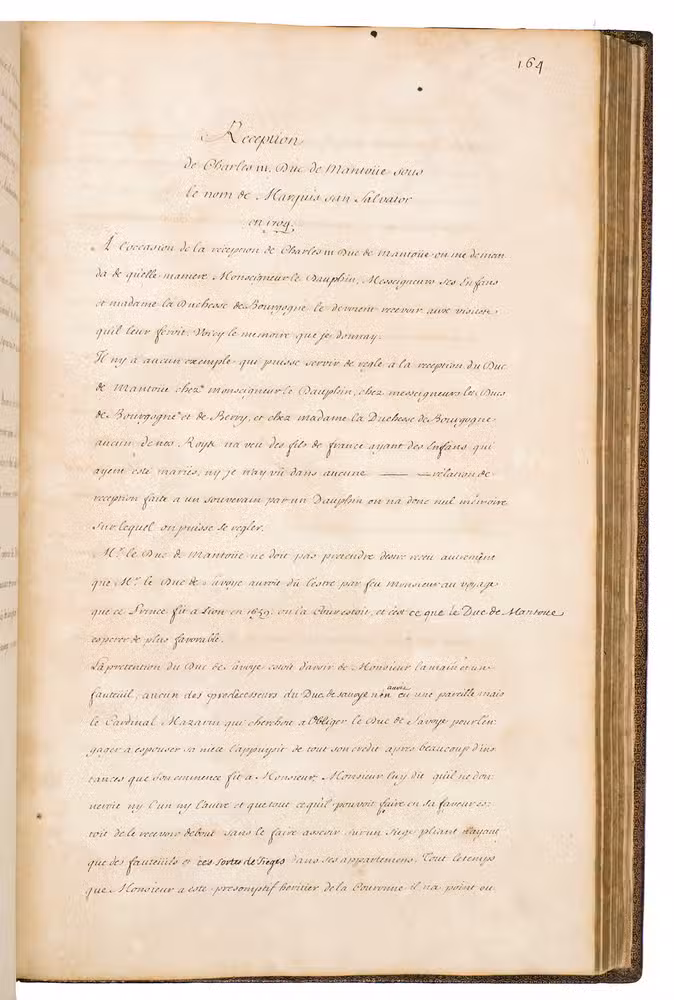 164
Reception
de Charles III. Duc de Mantoüe sous
le nom de Marquis san Salvator
en 1704.
A l'occasion de la réception de Charles III Duc de Mantoüe on me deman
da de quelle maniere Monseigneur le Dauphin, Messeigneurs ses Enfans
et madame la Duchesse de Bourgogne le devroient recevoir aux visites
qu'il leur feroit. Voicy le memoire que je donnay.
Il ny a aucun exemple qui puisse servir de regle a la reception du Duc
de Mantoüe chez monseigneur le Dauphin, chez messeigneurs les Ducs
de Bourgogne et de Berry, et chez madame la Duchesse de Bourgogne
aucun de nos Roys na veu des fils de france ayant des Enfans qui
ayent esté mariés, ny je n'ay vû dans aucune relation de
reception faite a un souverain par un Dauphin on na donc nul mémoire
sur lequel on puisse se regler.
Mr. le Duc de Mantoüe ne doit pas pretendre destre receu autrement
que Mr. le Duc de Savoye auroit dû l'estre par feu Monsieur au voyage
que ce Prince fit a Lion en 1659. ou la Cour estoit, et c'est ce que le Duc de Mantoue
esperer de plus favorable.
La pretention du Duc de Savoye estoit d'avoir de Monsieur la main et un
fauteuil, aucun des predecesseurs du Duc de savoye n'en avoit eu une pareille mais
le Cardinal Mazarin qui cherchoit a obliger le Duc de Savoye pour l'en
gager a espouser sa niece l'appuyoit de tout son credit apres beaucoup d'ins
tances que son eminence fit a Monsieur, Monsieur luy dit qu'il ne don
neroit ny l'un ny l'autre et que tout ce qu'il pouvoit faire en sa faveur es
toit de le recevoir debout sans le faire asseoir sur un siege pliant n'ayant
que des fauteuils et ces sortes de sieges dans ses appartemens. Tout le temps
que Monsieur a este presomptif heritier de la Couronne il na point eu